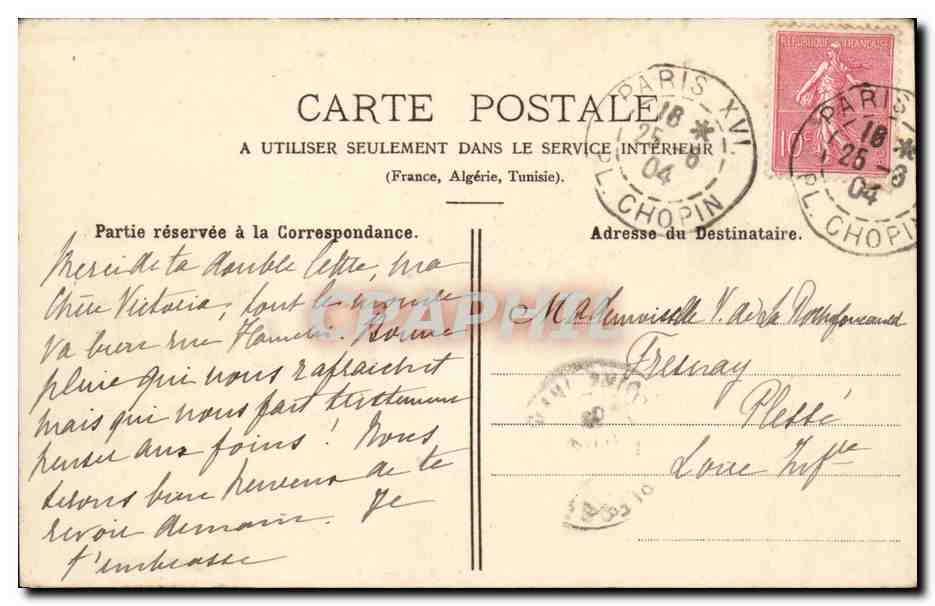 CARTE POSTALE
A UTILISER SEULEMENT DANS LE SERVICE INTÉRIEUR
(France, Algérie, Tunisie).
RÉPUBLIQUE FRANÇAISE
10c
PARIS XVI.
18 *
25 -6
04
PL. CHOPIN
PARIS
18 *
25 -6
04
PL. CHOPIN
Partie réservée à la Correspondance.
Merci de ta double lettre, ma
Chère Victoria, tout le monde
va bien rue Hamelin. Bonne
pluie qui nous rafraichit
mais qui nous fait tristement
penser aux foins! Nous
serons bien heureux de te
revoir demain. Je
t'embrasse
Adresse du Destinataire.
Mademoiselle V. de la
Fresnay
Plessé
Loire Infre
CPAPHIL